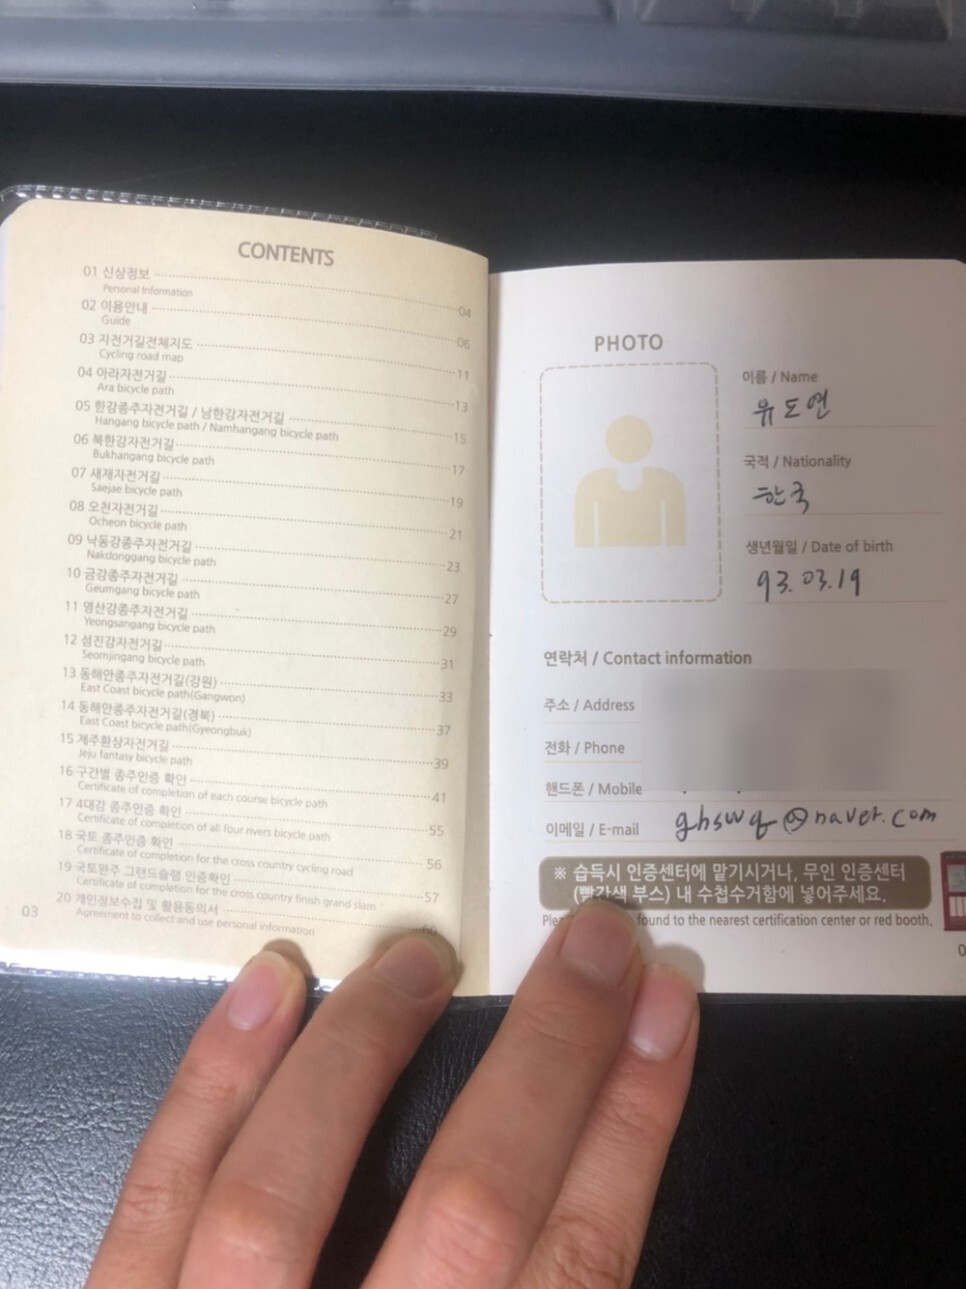 CONTENTS
01 신상정보 04
Personal Information
02 이용안내 06
Guide
03 자전거길전체지도 11
Cycling road map
04 아라자전거길 13
Ara bicycle path
05 한강종주자전거길 / 남한강자전거길 15
Hangang bicycle path / Namhangang bicycle path
06 북한강자전거길 17
Bukhangang bicycle path
07 새재자전거길 19
Saejae bicycle path
08 오천자전거길 21
Ocheon bicycle path
09 낙동강종주자전거길 23
Nakdonggang bicycle path
10 금강종주자전거길 27
Geumgang bicycle path
11 영산강종주자전거길 29
Yeongsangang bicycle path
12 섬진강자전거길 31
Seomjingang bicycle path
13 동해안종주자전거길(강원) 33
East Coast bicycle path(Gangwon)
14 동해안종주자전거길(경북) 37
East Coast bicycle path(Gyeongbuk)
15 제주환상자전거길 39
Jeju fantasy bicycle path
16 구간별 종주인증 확인 41
Certificate of completion of each course bicycle path
17 4대강 종주인증 확인 55
Certificate of completion of all four rivers bicycle path
18 국토 종주인증 확인 56
Certificate of completion for the cross country cycling road
19 국토완주 그랜드슬램 인증확인 57
Certificate of completion for the cross country finish grand slam
20 개인정보수집 및 활용동의서
Agreement to collect and use personal information
03
PHOTO
이름 / Name
유도연
국적 / Nationality
한국
생년월일 / Date of birth
93.03.19
연락처 / Contact information
주소 / Address
전화 / Phone
핸드폰 / Mobile
이메일 / E-mail ghswq@naver.com
※ 습득시 인증센터에 맡기시거나, 무인 인증센터
(빨간색 부스) 내 수첩수거함에 넣어주세요.
found to the nearest certification center or red booth.